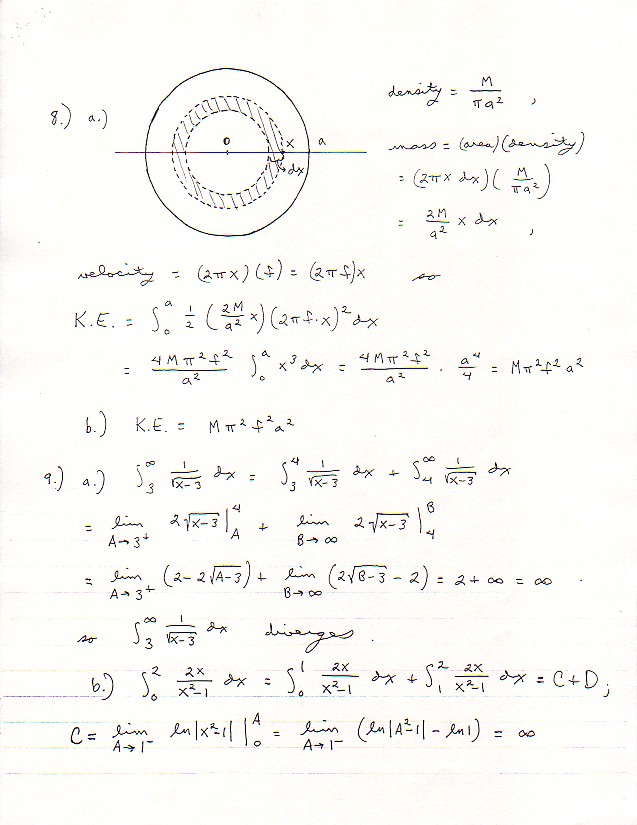 8.) a.) 0 x a dx
density = M/(πa²) ,
mass = (area)(density)
= (2πx dx)(M/(πa²))
= (2M/a²) x dx ,
velocity = (2πx)(f) = (2πf)x so
K.E. = ∫₀ᵃ 1/2 (2M/a² x)(2πf·x)² dx
= (4Mπ²f²)/a² ∫₀ᵃ x³ dx = (4Mπ²f²)/a² · a⁴/4 = Mπ²f²a²
b.) K.E. = Mπ²f²a²
9.) a.) ∫₃^∞ 1/√(x-3) dx = ∫₃⁴ 1/√(x-3) dx + ∫₄^∞ 1/√(x-3) dx
= lim_{A→3⁺} 2√(x-3) |_A^4 + lim_{B→∞} 2√(x-3) |_4^B
= lim_{A→3⁺} (2-2√(A-3)) + lim_{B→∞} (2√(B-3) - 2) = 2+∞ = ∞ .
so ∫₃^∞ 1/√(x-3) dx diverges .
b.) ∫₀² 2x/(x²-1) dx = ∫₀¹ 2x/(x²-1) dx + ∫₁² 2x/(x²-1) dx = C+D ;
C = lim_{A→1⁻} ln|x²-1| |_0^A = lim_{A→1⁻} (ln|A²-1| - ln1) = ∞